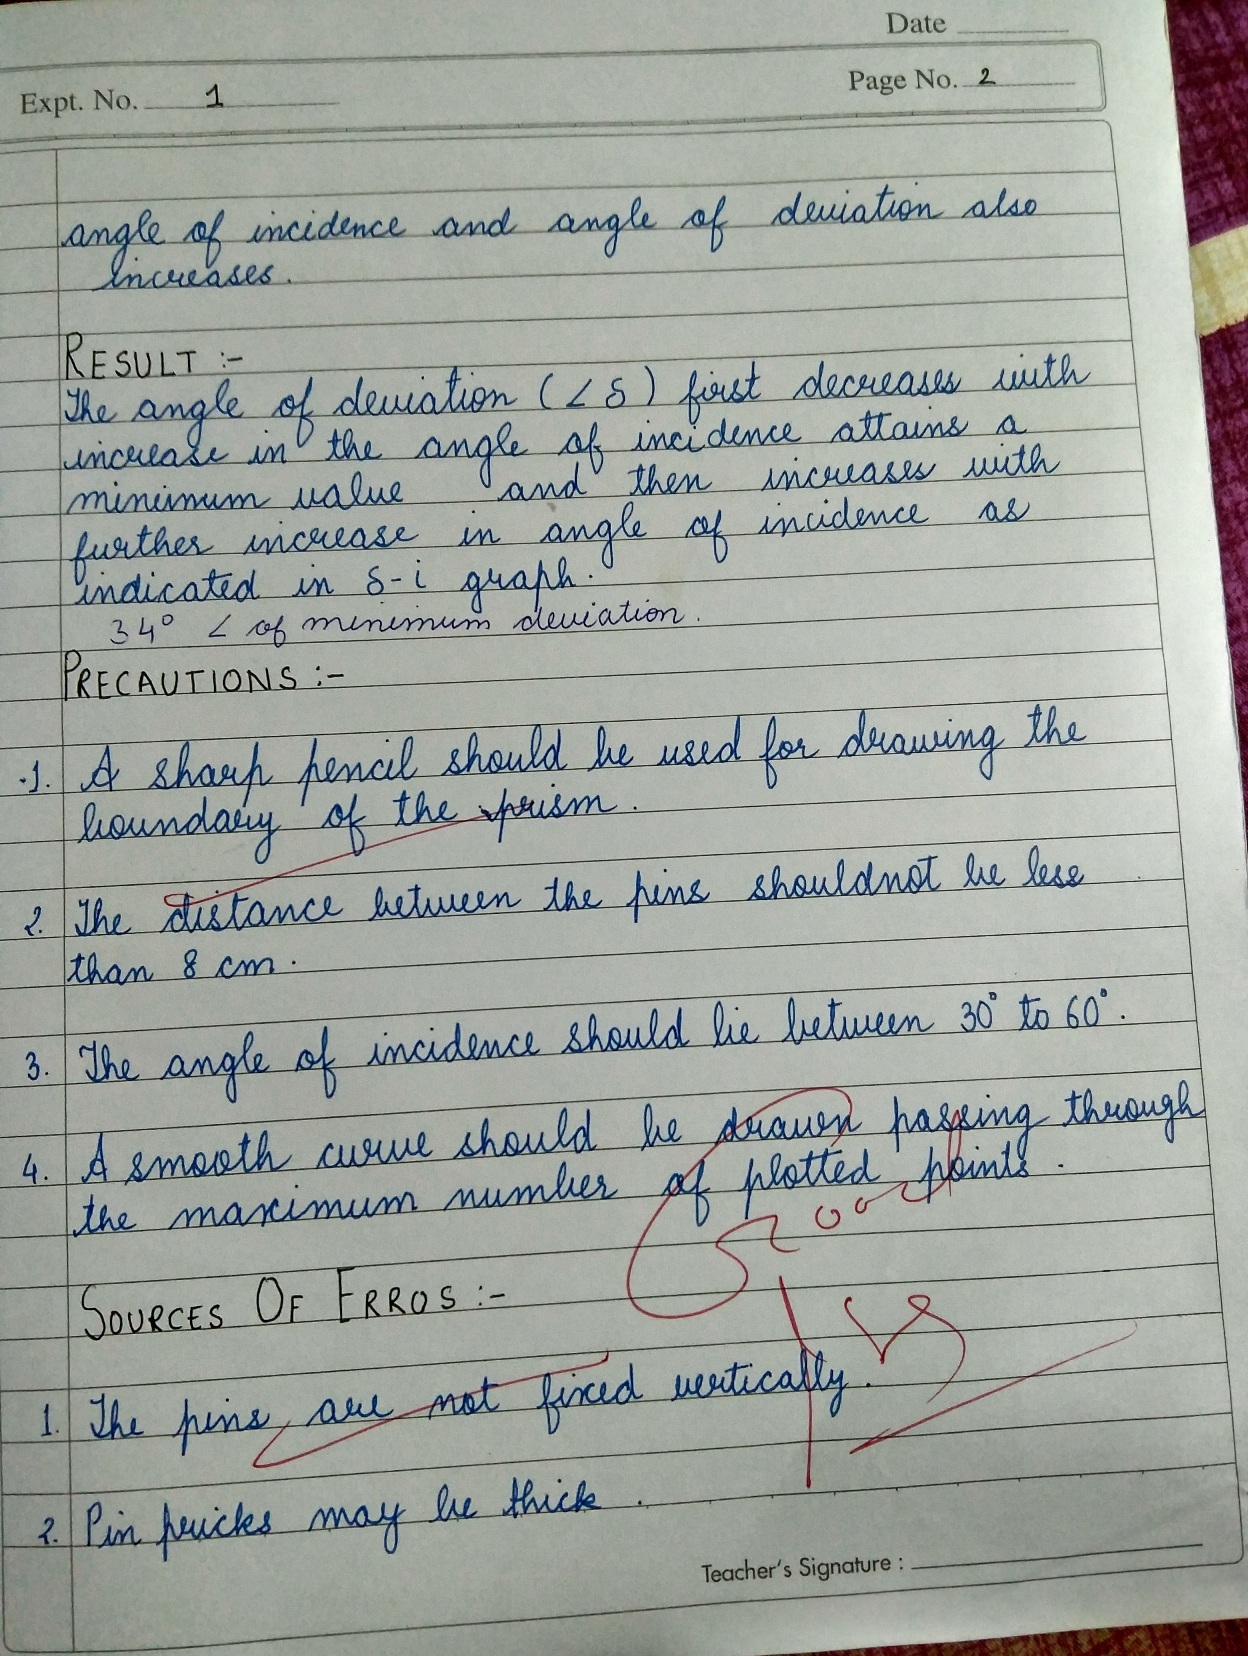 Date
Expt. No. 1
Page No. 2
angle of incidence and angle of deviation also
increases.
RESULT :-
The angle of deviation (∠δ) first decreases with
increase in the angle of incidence attains a
minimum value and then increases with
further increase in angle of incidence as
indicated in δ-i graph.
34° ∠ of minimum deviation.
PRECAUTIONS :-
1. A sharp pencil should be used for drawing the
boundary of the prism.
2. The distance between the pins shouldnot be less
than 8 cm.
3. The angle of incidence should lie between 30° to 60°.
4. A smooth curve should be drawn passing through
the maximum number of plotted points.
SOURCES OF ERROS :-
1. The pins are not fixed vertically.
2. Pin pricks may be thick.
Teacher's Signature :